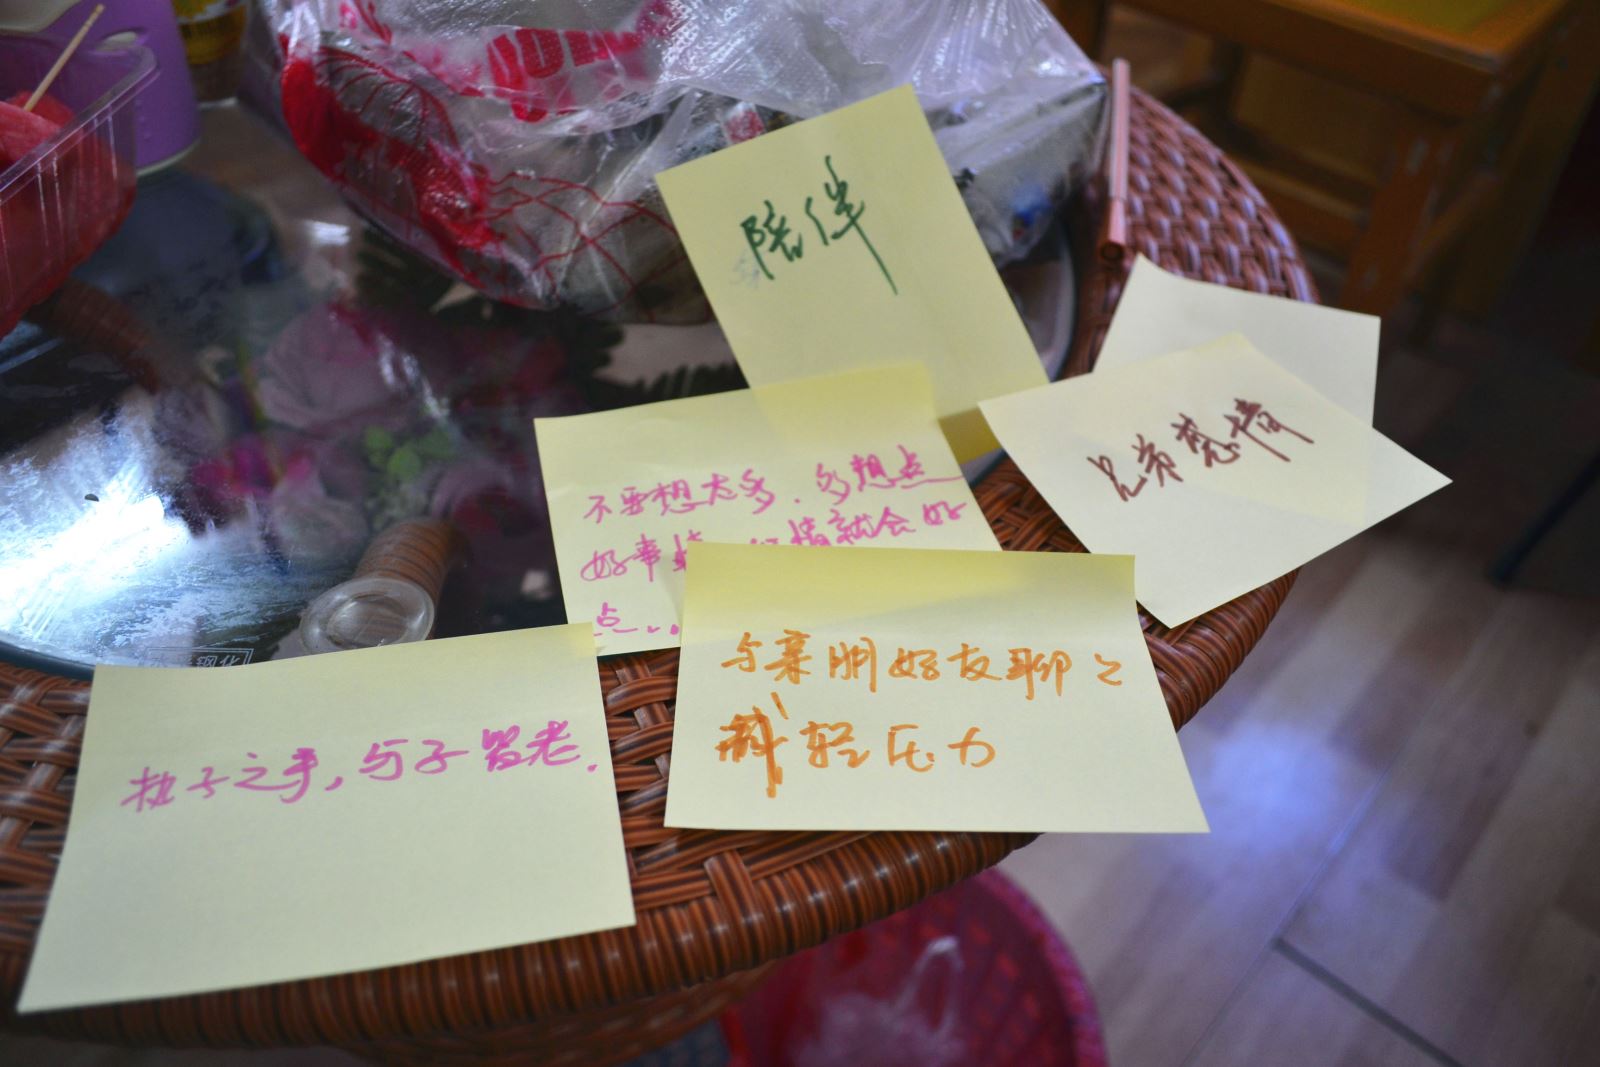 陪伴
不要想太多.多想点
好事情 心情就会好
点...
兄弟感情
与亲朋好友聊之
减轻压力
执子之手,与子皆老.
钢化